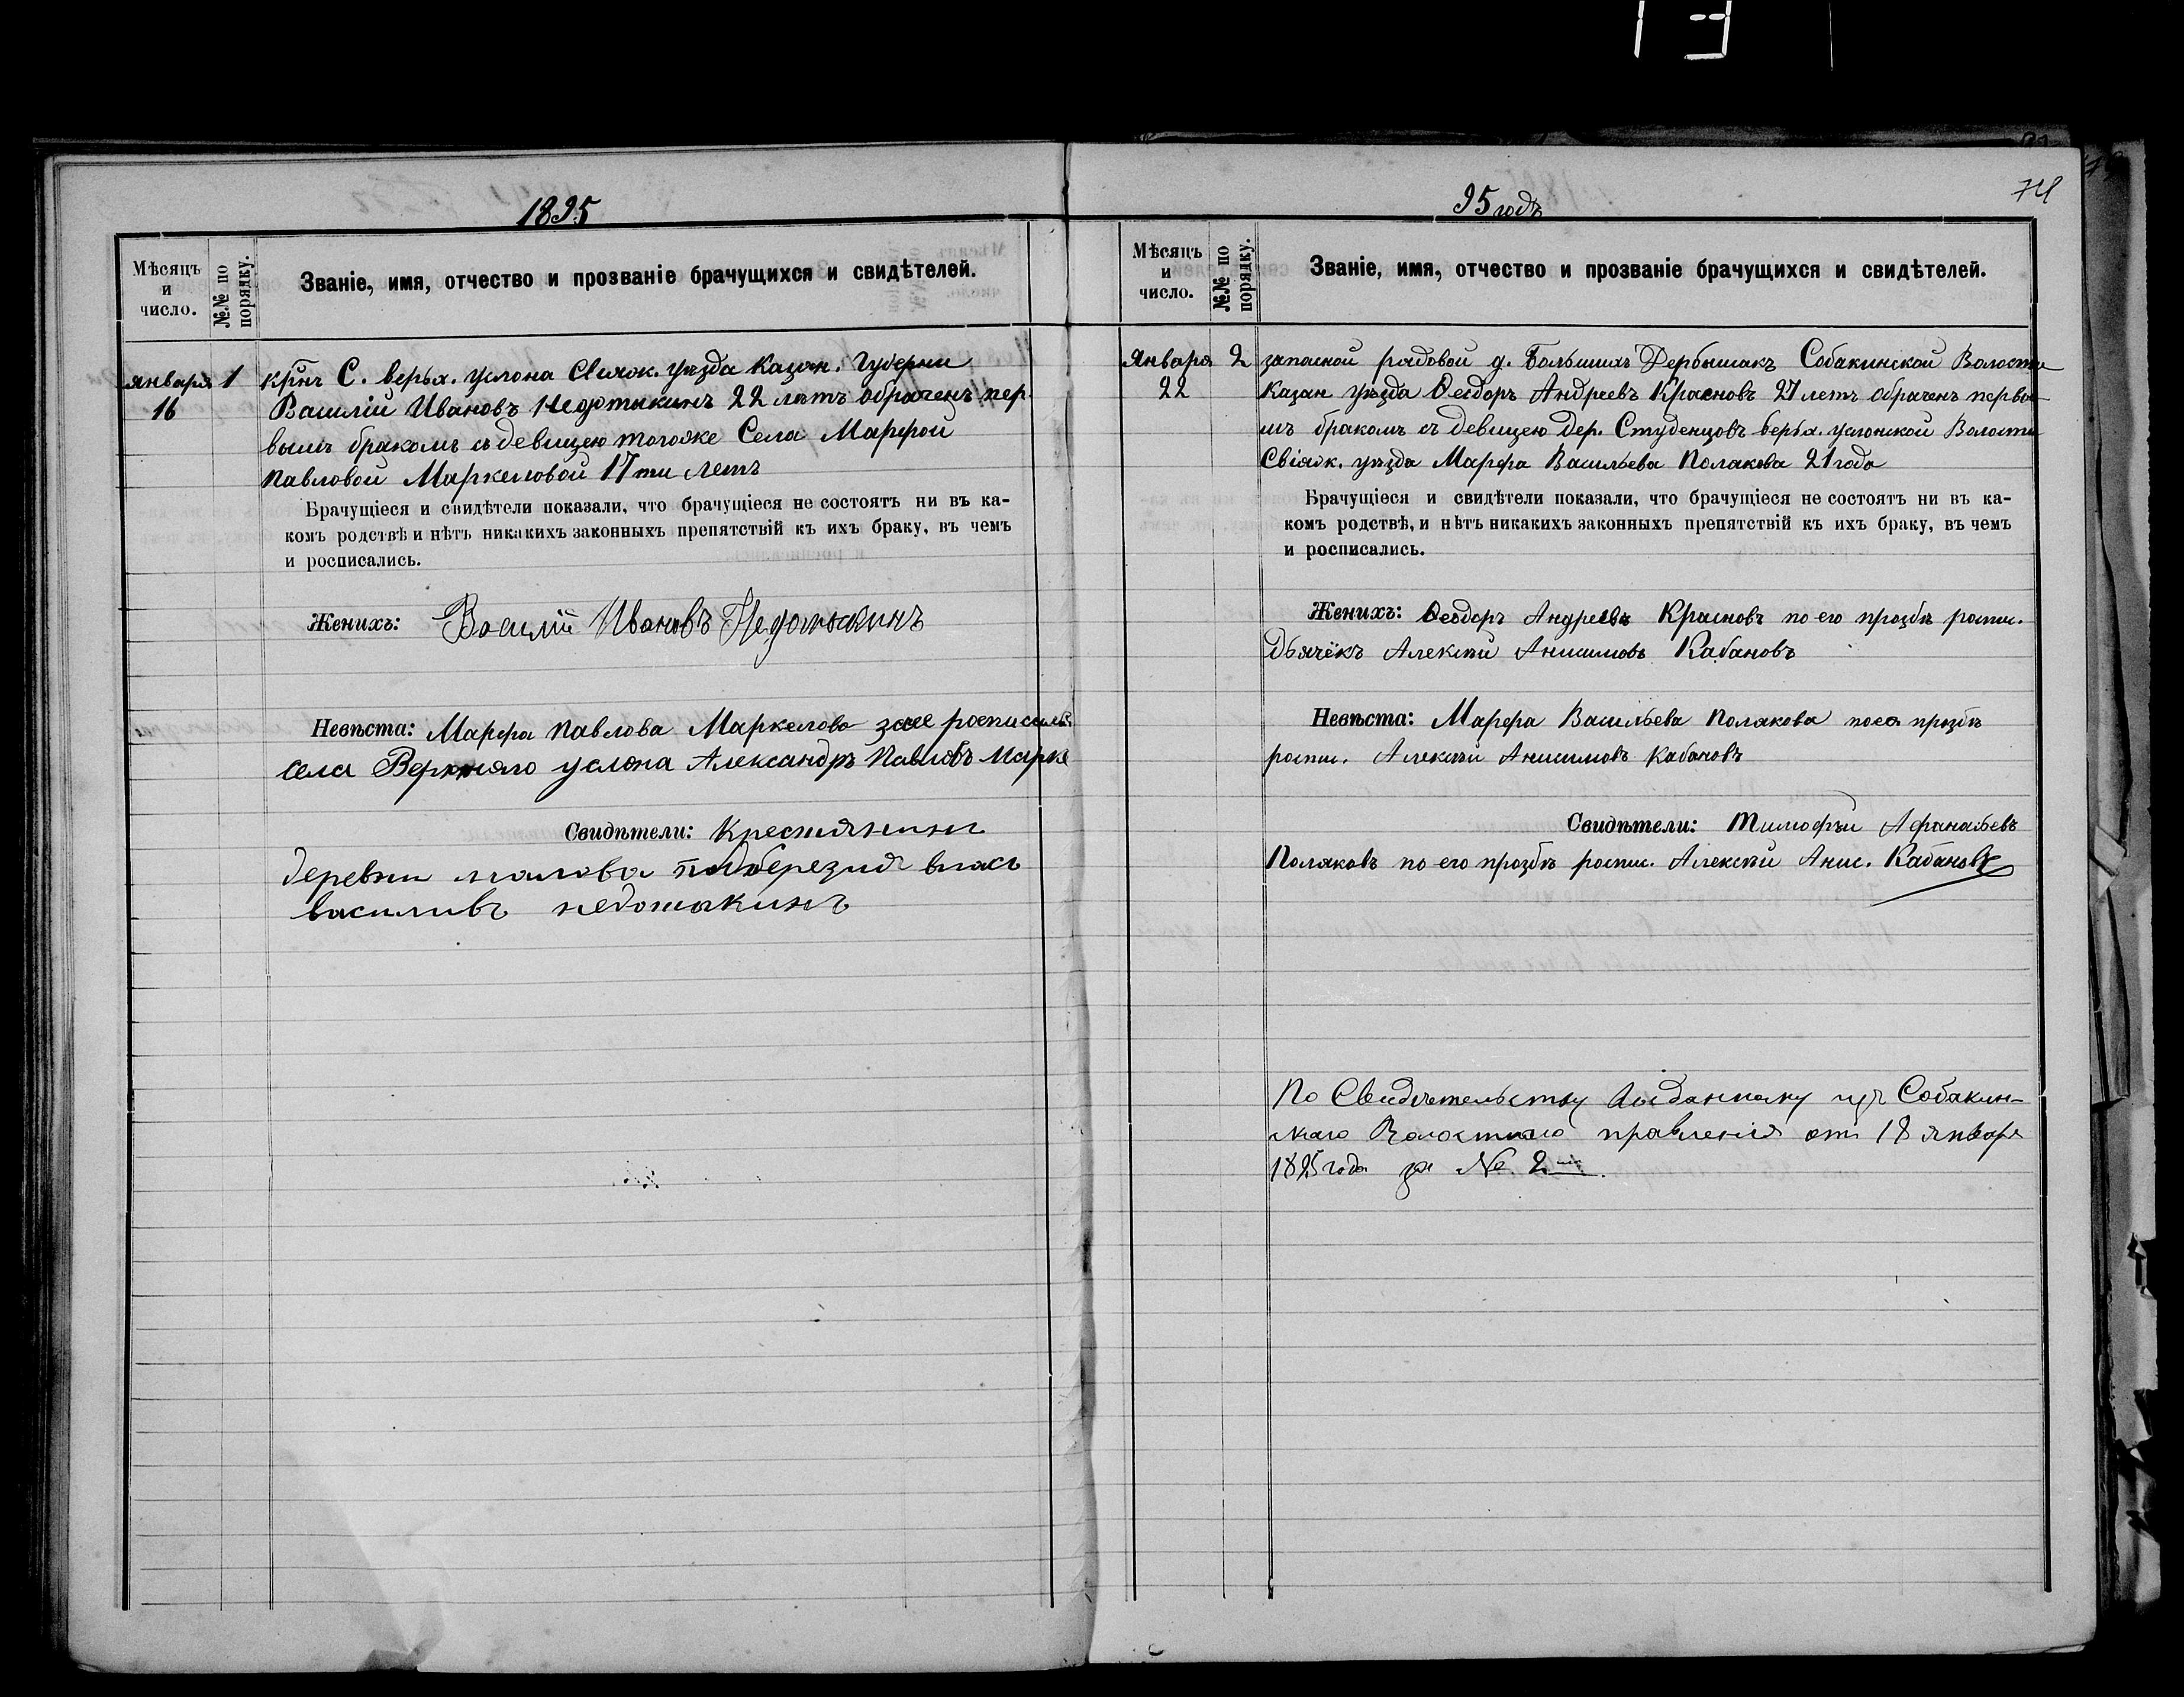 1895
Мѣсяцъ и число.
№№ по порядку.
Званіе, имя, отчество и прозваніе брачущихся и свидѣтелей.
января 1 крнъ С. верьх. Услона Свіяж. уѣзда Казан. Губерни
16 Василій Ивановъ Недотыкинъ 22 лѣтъ обраченъ пер
вымъ бракомъ съ девицею тогоже Села Марфой
Павловой Маркеловой 17ти летъ
Брачущіеся и свидѣтели показали, что брачущіеся не состоятъ ни въ ка-
комъ родствѣ и нѣтъ никакихъ законныхъ препятствій къ ихъ браку, въ чемъ
и росписались.
Женихъ: Василій Ивановъ Недотыкинъ
Невѣста: Марфа Павлова Маркелова за нее росписалъ
села Верхняго услона Александръ Павловъ Марке
Свидѣтели: Крестянинъ
деревни малова подберезия власъ
василивъ недотыкинъ
95 годъ
74
Мѣсяцъ и число.
№№ по порядку.
Званіе, имя, отчество и прозваніе брачущихся и свидѣтелей.
Января 2 запасной рядовой д. Большихъ Дербышакъ Собакинской Волости
22 Казан уѣзда Ѳеодоръ Андреевъ Красновъ 27 летъ обраченъ первы
мъ бракомъ съ девицею дер. Студенцовъ верьх. услонской Волости
Свіяж. уѣзда Марфа Васильева Полакова 21 года
Брачущіеся и свидѣтели показали, что брачущіеся не состоятъ ни въ ка-
комъ родствѣ, и нѣтъ никакихъ законныхъ препятствій къ ихъ браку, въ чемъ
и росписались.
Женихъ: Ѳеодоръ Андреевъ Красновъ по его прозбѣ роспис.
Дьячёкъ Алексѣй Анисимовъ Кабановъ
Невѣста: Марфа Васильева Полакова по ея прозбѣ
роспис. Алексѣй Анисимовъ Кабановъ
Свидѣтели: Тимофѣй Афанасьевъ
Поляковъ по его прозбѣ роспис. Алексѣй Анис. Кабановъ
По Свидѣтельству выданному изъ Собакин-
скаго Волостнаго правленія отъ 18 января
1895 года за № 2